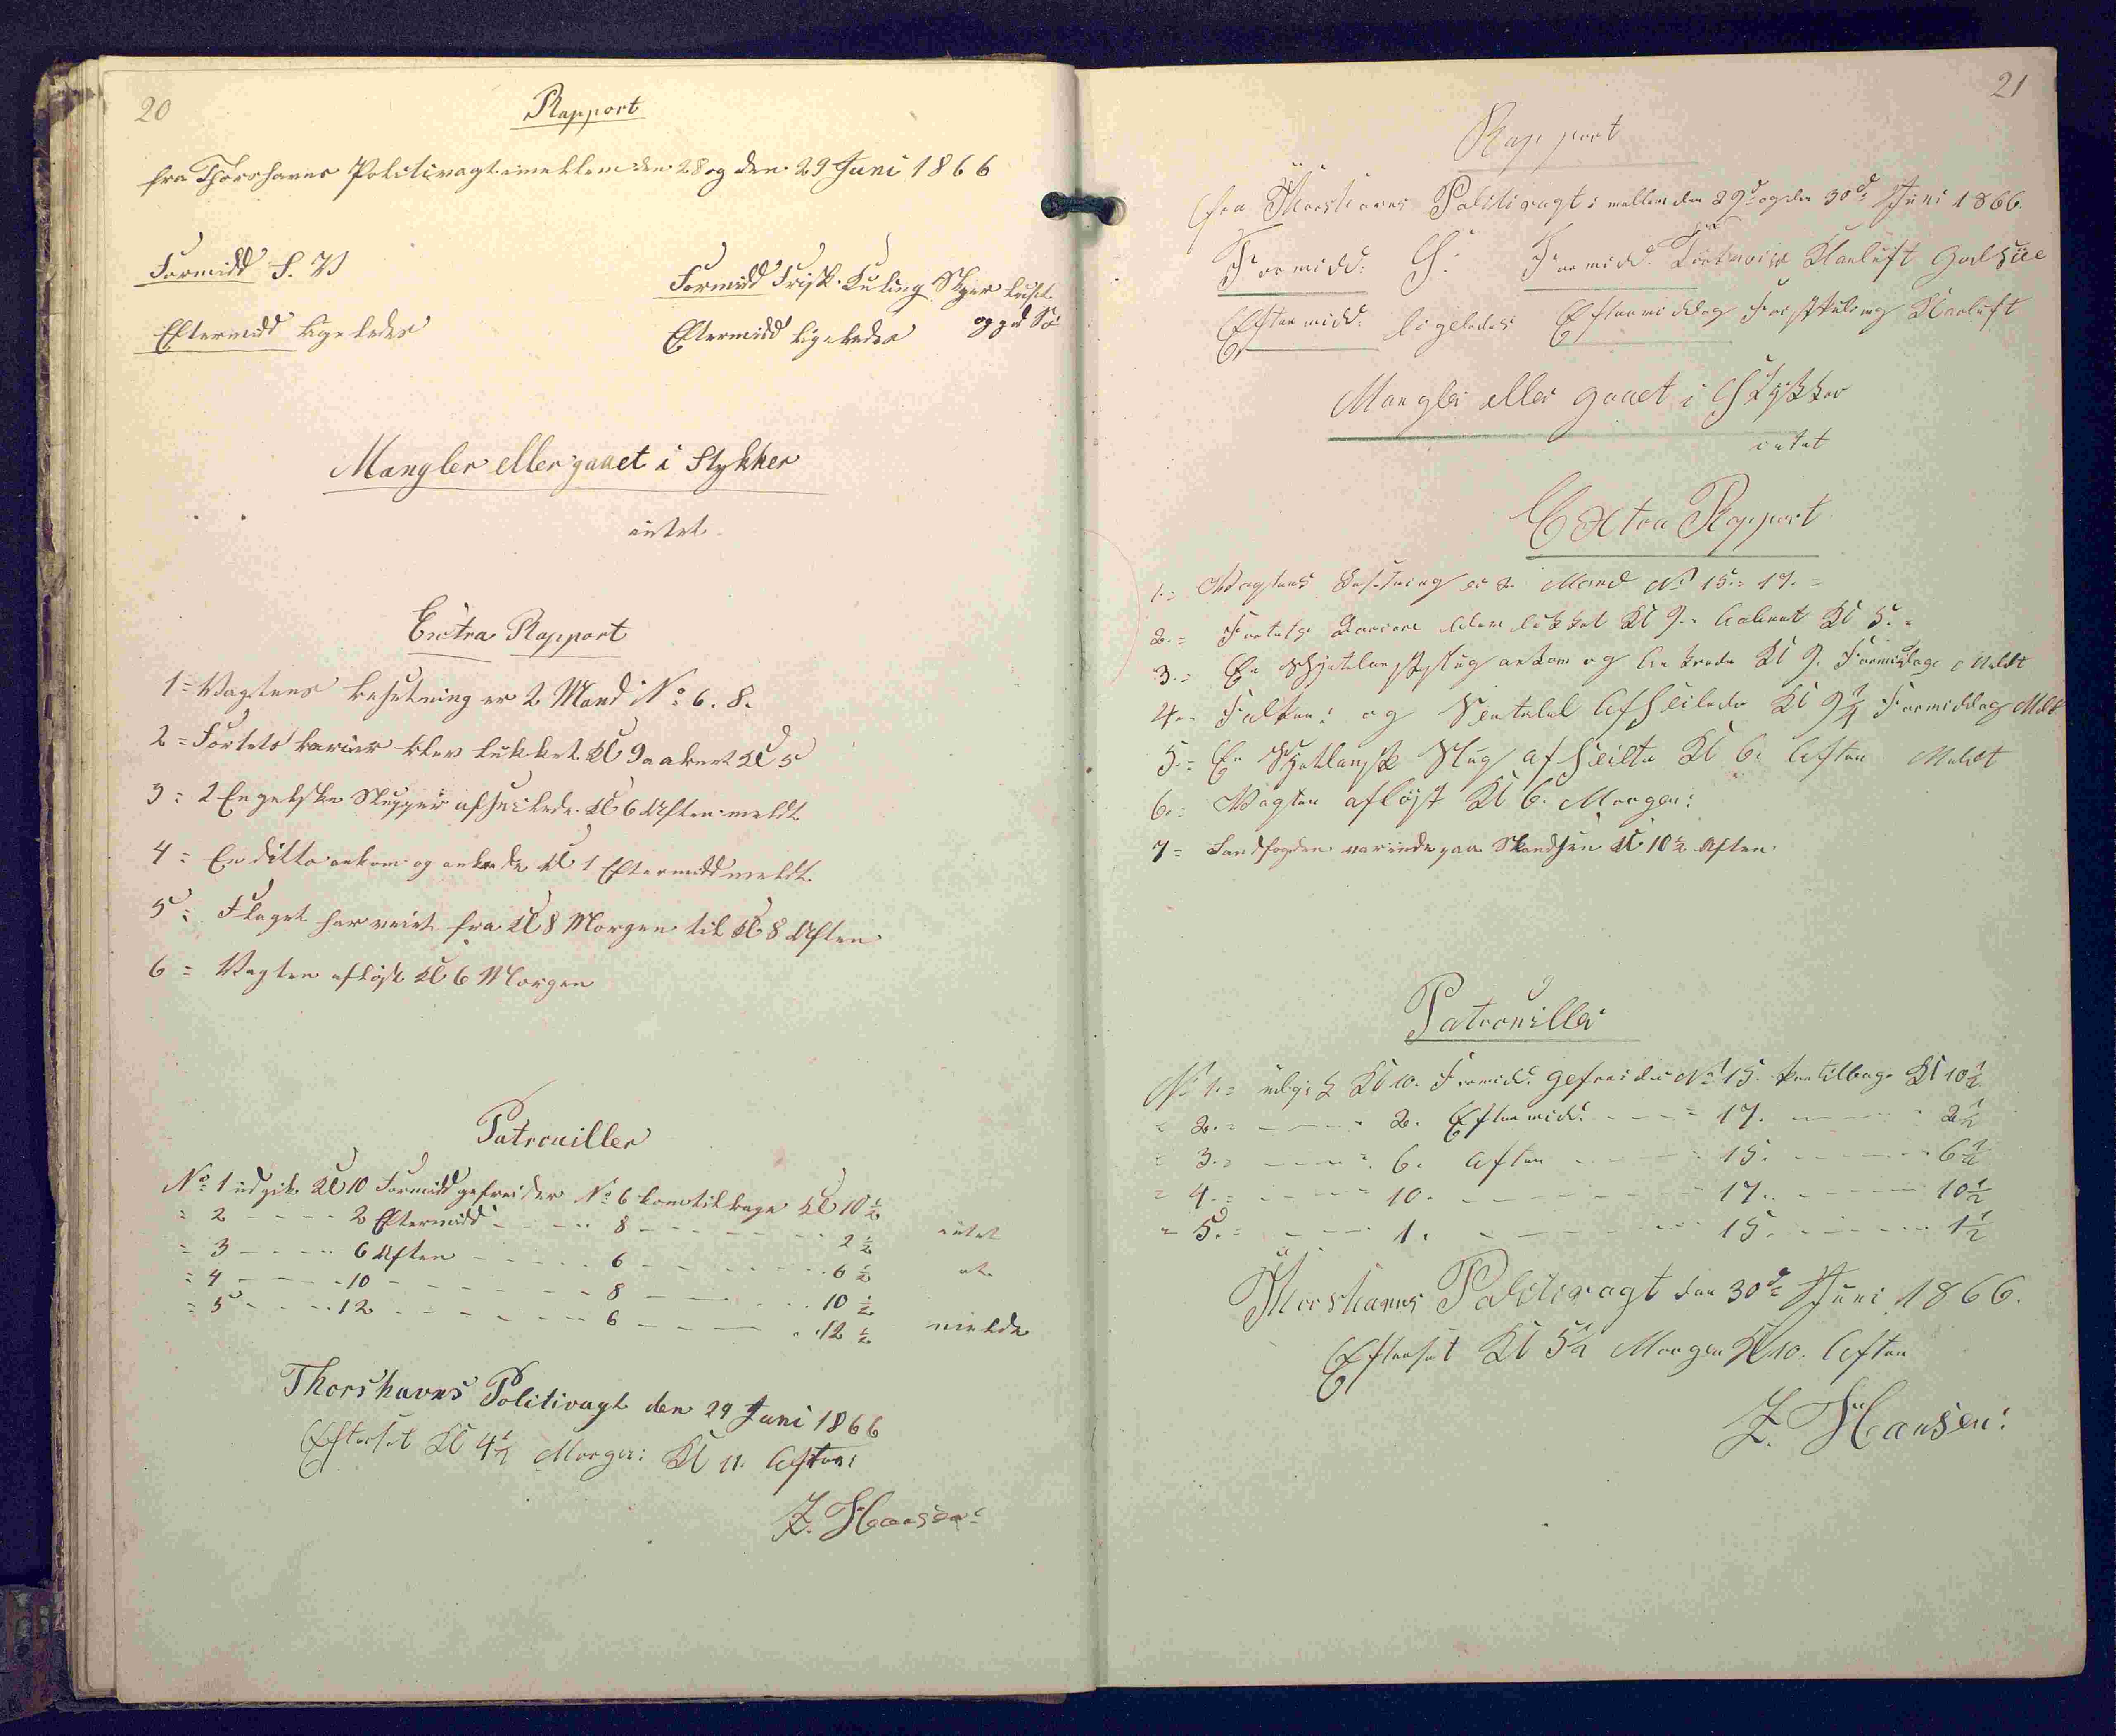 20
Rapport
fra Thorshavns Politivagt imellem den 28 og den 29 Juni 1866
Formidd S. V
Formidd Frisk Kuling Skyer Luft
og god Sö
Eftermidd ligeledes
Eftermidd ligeledes
Mangler eller gaaet i Stykker
intet
Extra Rapport
1 = Vagtens besetning er 2 Mand No: 6. 8.
2 = Fortets barier blev lukket Kl 9 aabent Kl 5
3 = 2 Engelske Slupper afseilede Kl 6 Aften meldt
4 = En ditto ankom og ankrede Kl 1 Eftermidd meldt
5 = Flaget har veiet fra Kl 8 Morgen til Kl 8 Aften
6 = Vagten aflöst Kl 6 Morgen
Patrouiller
No: 1 udgik Kl 10 Formidd gefreider No: 6 kom tilbage Kl 10 1/2
= 2 - - - - 2 Eftermidd - - - - 8 - - - - 2 1/2 intet
= 3 - - - - 6 Aften - - - - 6 - - - - 6 1/2 at
= 4 - - - - 10 - - - - 8 - - - - 10 1/2
= 5 - - - - 12 - - - - 6 - - - - 12 1/2 melde
Thorshavns Politivagt den 29 Juni 1866
Efterset Kl 4 1/2 Morgen: Kl 11. Aften:
Z. Hansen:
21
Rapport
fra Thorshavns Politivagt imellem den 29d og den 30d Juni 1866.
Formidd: S: Formidd. Klarluft god Süe
Eftermidd: ligeledes Eftermiddag Frisk Kuling Klarluft
Mangler eller gaaet i Stykker
intet
Extra Rapport
1. = Vagtens Besetning er 2 Mand No 15. = 17. =
2. = Fortets Bariere blev lukket Kl 9. Aabent Kl 5. =
3. = En Schjetlansk Slup ankom og Ankrede Kl 9. Formidag Meldt
4. = Falken: og Afseilede Kl 9 1/4 Formiddag Meldt
5. = En Skjetlansk Slup afseilte Kl 6. Aften Meldt
6. = Vagten aflöst Kl 6. Morgen:
7 = Landfogden var inde paa Skandsen Kl 10 1/2 Aften
Patrouiller
No 1. = udgik Kl 10. Formidd. gefreider No 15. kom tilbage Kl 10 1/2
= 2. = - - - - 2. Eftermidd: - - - - 17. - - - - 2 1/2
= 3. = - - - - 6. Aften - - - - 15. - - - - 6 1/2
= 4. = - - - - 10. - - - - 17. - - - - 10 1/2
= 5. = - - - - 1. - - - - 15. - - - - 1 1/2
Thorshavns Politivagt den 30d Juni 1866.
Efterset Kl 5 1/2 Morgen Kl 10. Aften
Z. Hansen: